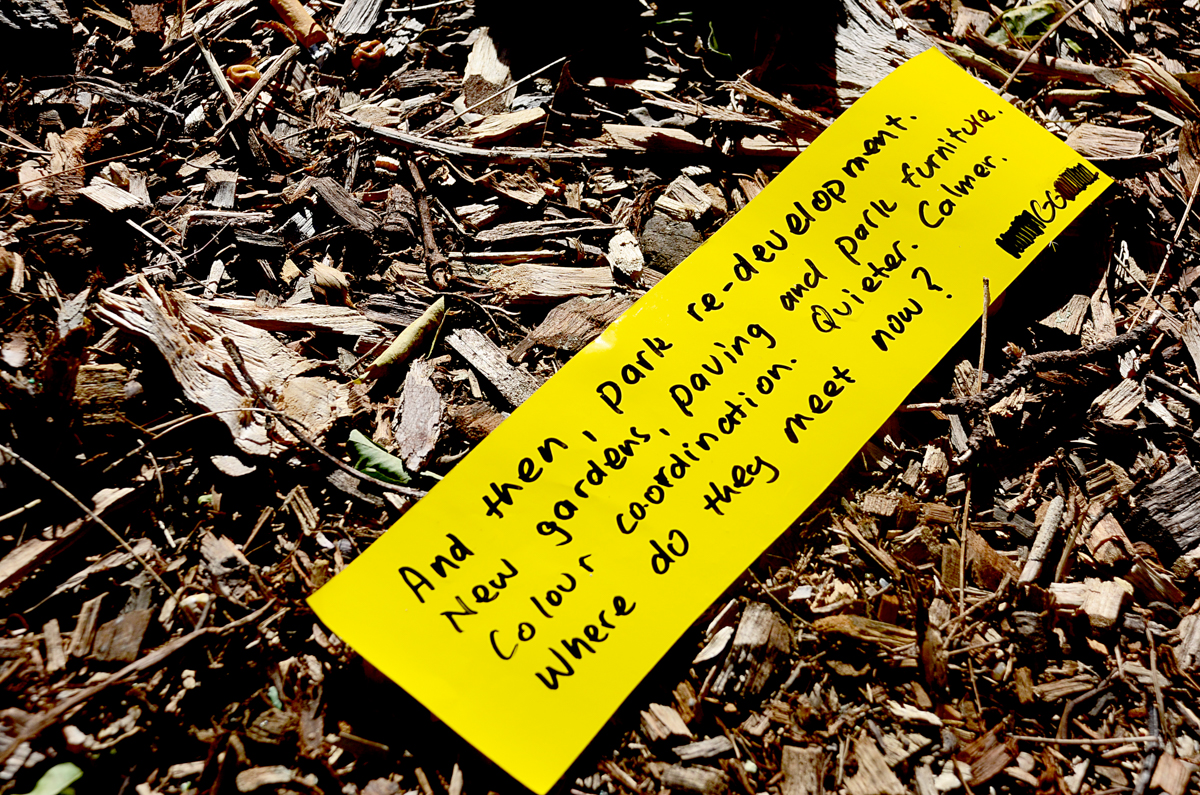 And then, park re-development.
New gardens, paving and park furniture.
Colour coordination. Quieter. Calmer.
Where do they meet now?
GG